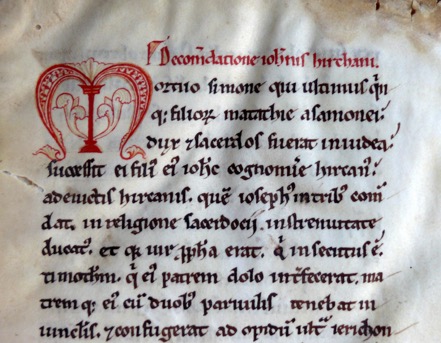 De com̄datione ioh̄nis hircani.
Mortuo simone qui ultimus q̄n
q; filior̄ matathie asamonei
dux ⁊ sacerdos fuerat in iudea.
successit ei fili᾽ ei᾽ ioh̄s cognom̄te hircan᾽.
a deuictis hircanis. quē ioseph᾽ in trib᾽ com̄
dat. in religione sacerdocii. in strenuitate
ducat᾽. et q̄ uir ꝓph̄a erat. q̄ insecutus ē.
ti motheū. q̄ ei᾽ patrem dolo int̄fecerat. ma
trem q; ei᾽ cū duob᾽ paruulis tenebat in
uinclis. ⁊ confugerat ad opidū ult̄ ierichon